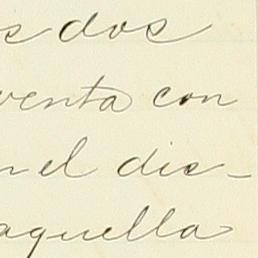 s dos
venta con
n el dic-
aquella